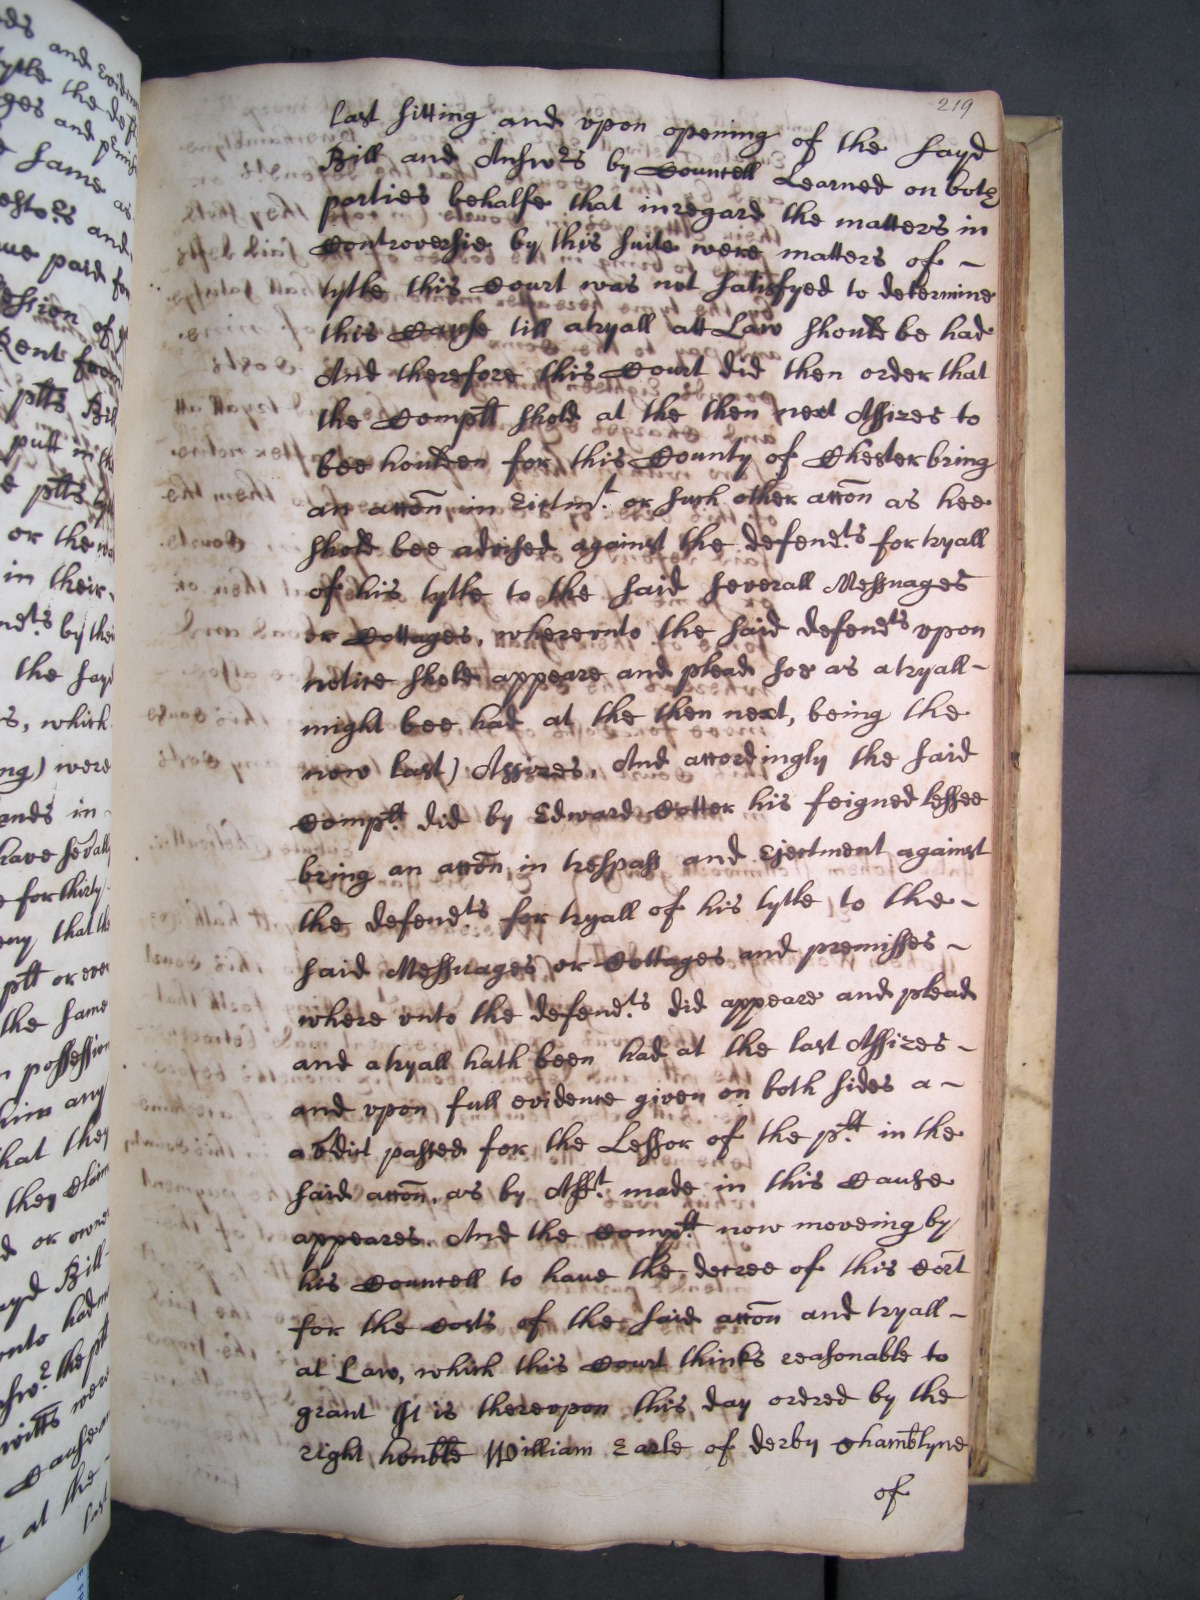 219
last sitting and vpon opening of the sayd
Bill and Answrs by Councell Learned on both
parties behalfe that inregard the matters in
Controversie by this suite were matters of -
tytle this Court was not satisfyed to determine
this Cause till a tryall att Law should be had
And therefore this Court did then order that
the Complt shold at the then next Assizes to
bee houlden for this County of Chester bring
an accōn in Eictmt. or such other accōn as hee
shold bee advised against the defendts for tryall
of his tytle to the said severall Messuages
or Cottages, wherevnto the said defendts vpon
notice shold appeare and plead soe as a tryall -
might bee had at the then next, being the
now last) Assizes, And accordingly the said
Complt did by Edward Cotter his feigned lessee
bring an accōn in trespass and Ejectment against
the defendts for tryall of his tytle to the -
said Messuages or Cottages and premisses -
where vnto the defendts did appeare and plead
and a tryall hath been had at the last Assizes -
and vpon full evidence given on both sides a -
a vdict passed for the Lessor of the plt in the
said accōn, as by Afft. made in this Cause
appeares. And the Complt now moveing by
his Councell to haue the decree of this Cort
for the costs of the said accōn and tryall -
at Law, which this Court thinks reasonable to
grant It is therevpon this day ordred by the
right honble William Earle of derby Chamblyne
of
ds and
tytle the
ges and
same as
and
ue paid for
ession of
Rent from
plts Bill
putt in
e plts
or the
in their
ndts by their
the sayd
s, which
ng) were
ands in
have sevall
e for thirty
eny that the
plt or ever
the same
possession
him any
that they
they claim
or owne
ayd Bill
the plt
witts were
Cause
at the
last